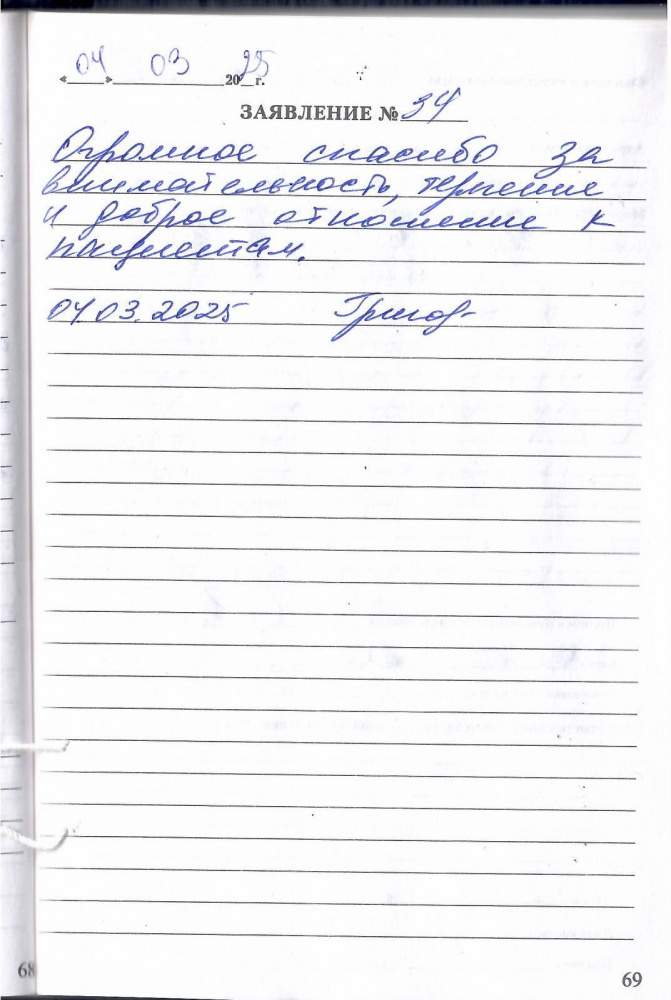 «04» 03 2025 г.
ЗАЯВЛЕНИЕ № 34
Огромное спасибо за
внимательность, терпение
и доброе отношение к
пациентам.
04.03.2025
68
69